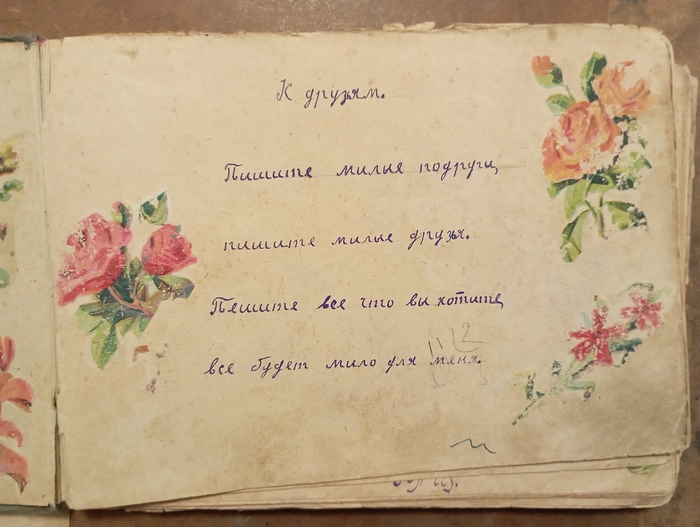 К друзьям.
Пишите милые подруги,
пишите милые друзья.
Пешите все что вы хотите,
все будет мило для меня.